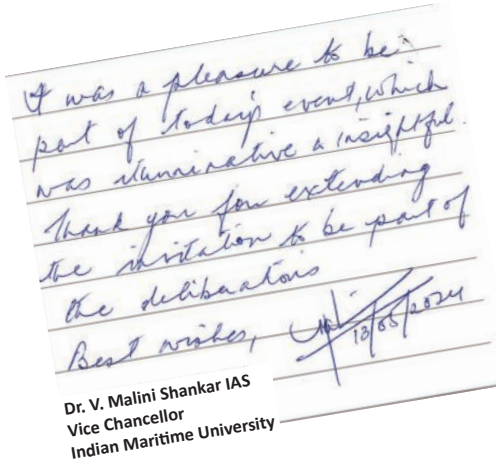 It was a pleasure to be
part of today's event, which
was illuminative & insightful.
Thank you for extending
the invitation to be part of
the deliberations
Best wishes,
13/05/2024
Dr. V. Malini Shankar IAS
Vice Chancellor
Indian Maritime University